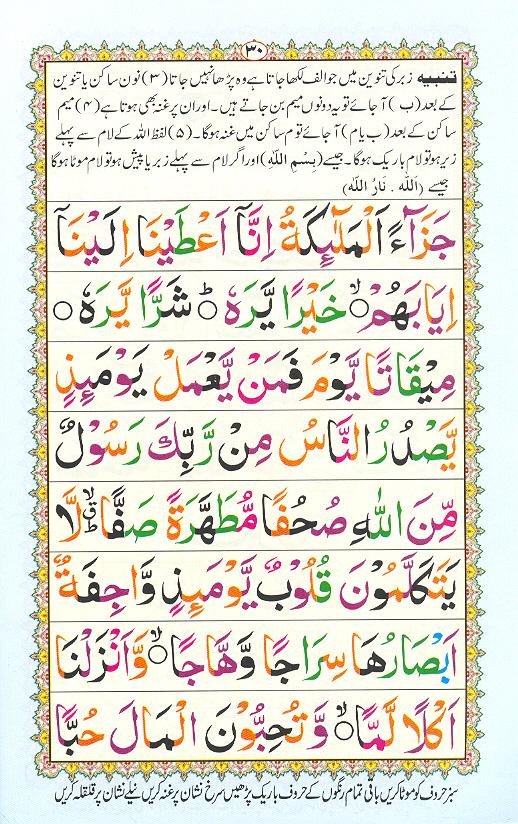 ۳۰
تنبیہ زبر کی تنوین میں جو الف لکھا جاتا ہے وہ پڑھا نہیں جاتا (۳) نون ساکن یا تنوین
کے بعد (ب) آ جائے تو یہ دونوں میم بن جاتے ہیں۔ اور ان پر غنہ بھی ہوتا ہے (۴) میم
ساکن کے بعد (ب یا م) آ جائے تو م ساکن میں غنہ ہوگا۔ (۵) لفظ اللہ کے لام سے پہلے
زیر ہو تو لام باریک ہوگا۔ جیسے (بِسْمِ اللّٰهِ) اور اگر لام سے پہلے زبر یا پیش ہو تو لام موٹا ہوگا
جیسے (اَللّٰهُ . نَارُ اللّٰهِ)
جَزَآءً اَلْمَلٰٓئِكَةُ اِنَّآ اَعْطَيْنَا اِلَيْنَآ
اِيَابَهُمْ ۙ○ خَيْرًا يَّرَهٗ ○ؕ شَرًّا يَّرَهٗ ○
مِيْقَاتًا يَّوْمَ فَمَنْ يَّعْمَلْ يَوْمَئِذٍ
يَّصْدُرُ النَّاسُ مِنْ رَّبِّكَ رَسُوْلٌ
مِّنَ اللّٰهِ صُحُفًا مُّطَهَّرَةً صَفًّا ۙؕق لَّا
يَتَكَلَّمُوْنَ قُلُوْبٌ يَّوْمَئِذٍ وَّاجِفَةٌ
اَبْصَارُهَا سِرَاجًا وَّهَّاجًا ۙ○ وَّاَنْزَلْنَا
اَكْلًا لَّمًّا ۙ○ وَّتُحِبُّوْنَ الْمَالَ حُبًّا
سبز حروف کو موٹا کریں باقی تمام رنگوں کے حروف باریک پڑھیں سرخ نشان پر غنہ کریں نیلے نشان پر قلقلہ کریں